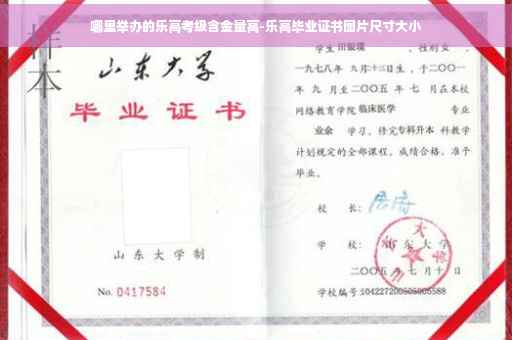 哪里举办的乐高考级含金量高-乐高毕业证书图片尺寸大小
样本
山东大学
毕业证书
山东大学制
No. 0417584
学生 性别女，
一九七八年 九月十三日生，于二〇〇一
年 九 月至二〇〇五 年 七 月在本校
网络教育学院 临床医学 专业
业余 学习，修完专科升本 科教学
计划规定的全部课程，成绩合格，准予
毕业。
校 长：
学 校： 山东大学
二〇〇五 年 七 月 十 日
学校编号: